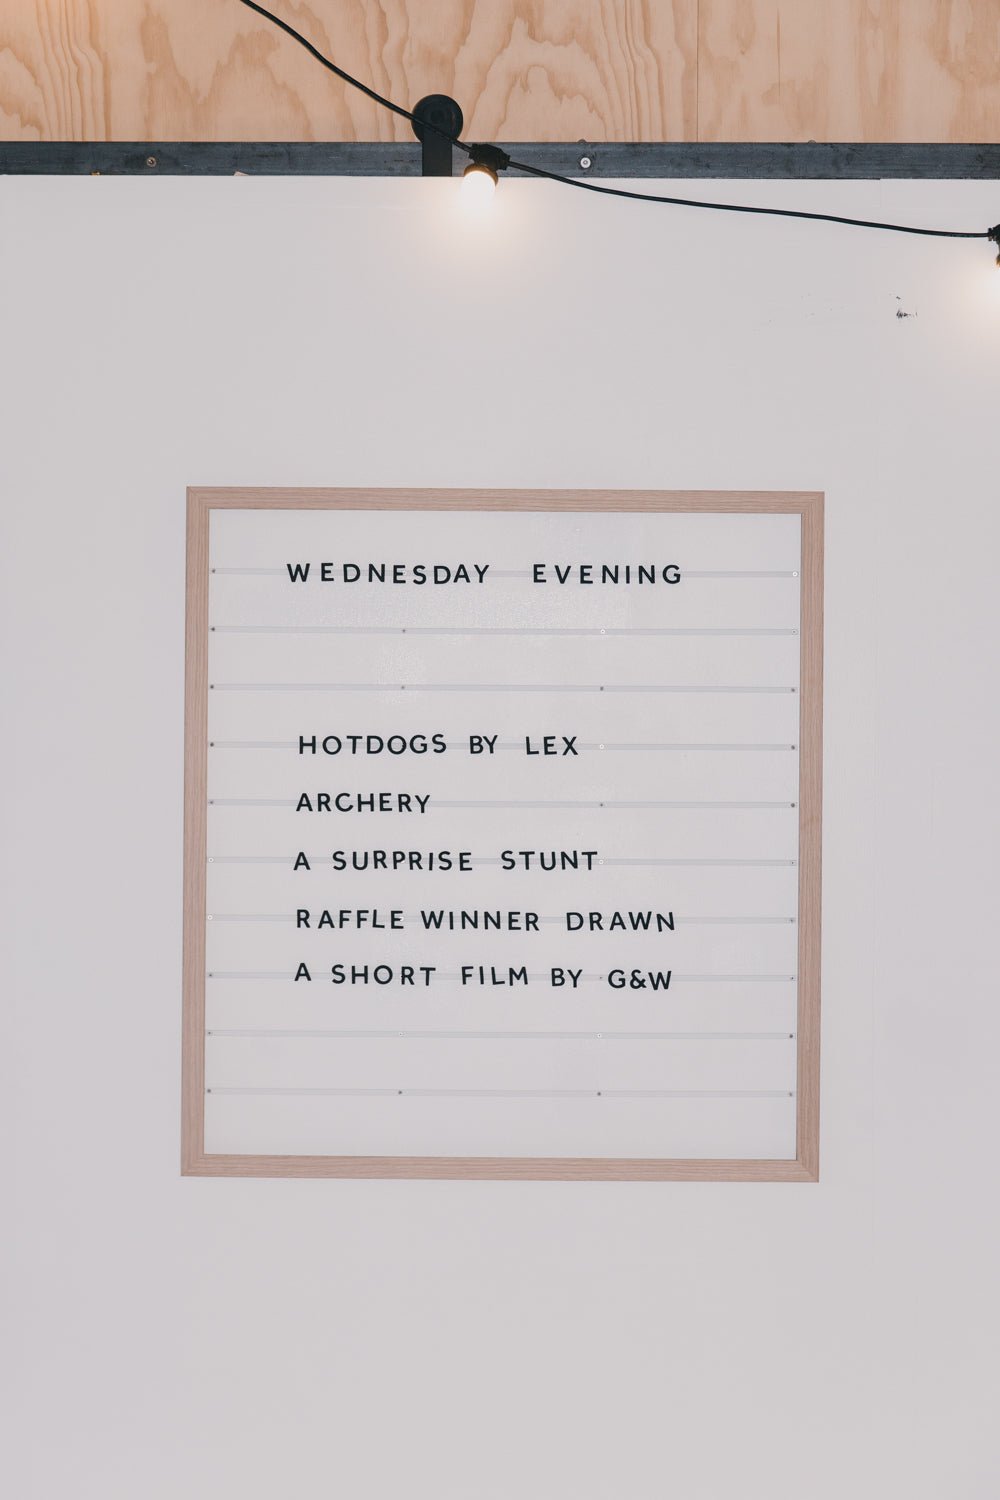 WEDNESDAY EVENING
HOTDOGS BY LEX
ARCHERY
A SURPRISE STUNT
RAFFLE WINNER DRAWN
A SHORT FILM BY G&W